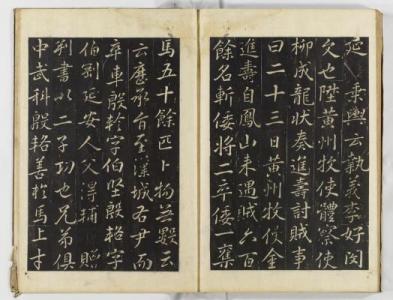 延乘輿云執義李好閔
久也陞黃州牧使體察使
柳成龍狀奏進壽討賊事
曰二十三日黃州牧使金
進壽自鳳山來遇賊六百
餘名斬倭將二卒倭一奪
馬五十餘匹卜物無數云
云歷承旨至漢城右尹而
卒車殷軫字伯堅殷輅字
伯剛延安人父淂輔贈
判書以二子功也兄弟俱
中武科殷輅善於馬上才